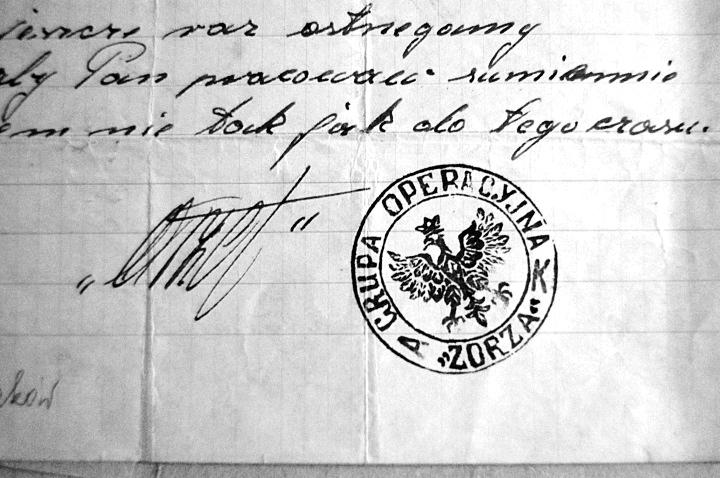 jeszcze raz ostrzegamy
aby Pan pracował sumiennie
em nie tak jak do tego czasu.
GRUPA OPERACYJNA
A „ZORZA” K